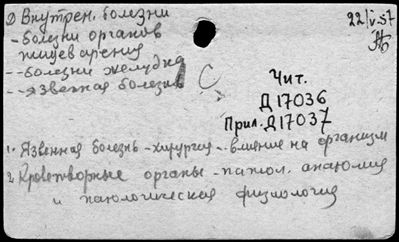 Внутрен. болезни
22/V-57
-болезни органов
пищеварения
--болезни желудка
---язвенная болезнь
С
Чит.
Д17036
Прил. Д17037
1. Язвенная болезнь -хирургия -- влияние на организм
2. Кроветворные органы -патол. анатомия
и патологическая физиология